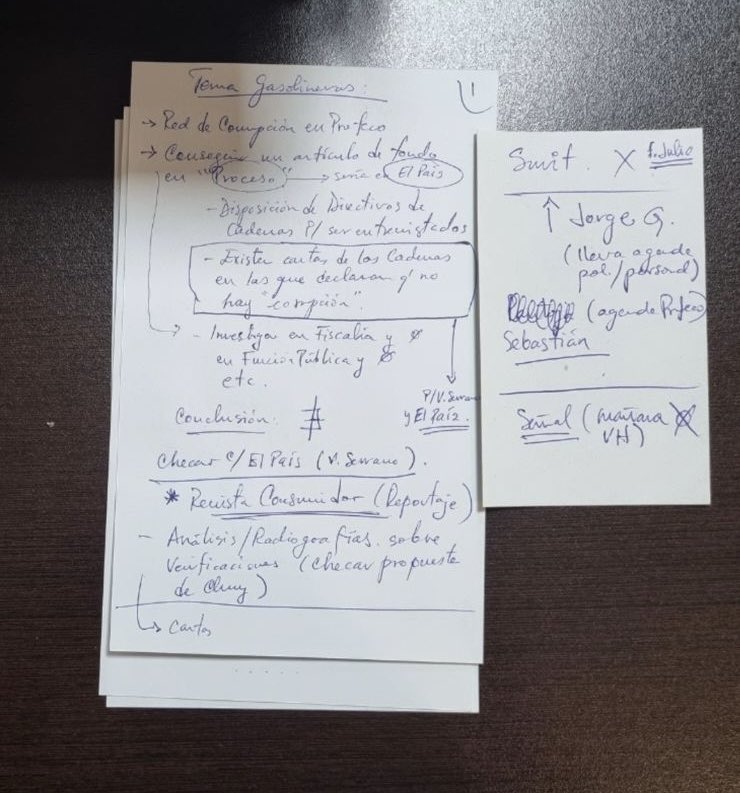 Tema Gasolineras:
1
→ Red de Corrupción en Profeco
→ Conseguir un artículo de fondo
en "Proceso" → sería en El País
- Disposición de Directivos de
Cadenas P/ ser entrevistados
- Existen cartas de las Cadenas
en las que declaran q' no
hay "corrupción".
- Investigar en Fiscalía y
en Función Pública y
etc.
P/V. Serrano
y El País.
Conclusión:
Checar c/ El País (V. Serrano).
* Revista Consumidor (Reportaje)
- Análisis/Radiografías sobre
Verificaciones (checar propuesta
de Chuy)
↳ Cartas
Smit. X 1. Julio
↑ Jorge G.
(lleva agenda
pol./personal)
(agenda Profeco)
Sebastián
Señal (mañana
VH)